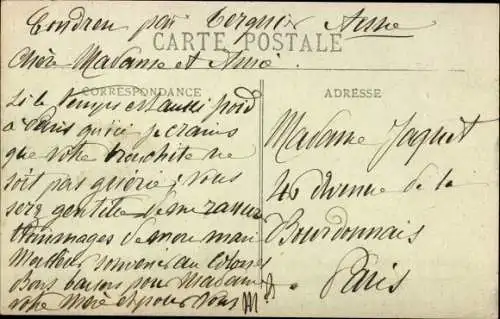 Condren par Tergnier Aisne
CARTE POSTALE
Chère Madame et Amie.
CORRESPONDANCE
ADRESSE
Si le temps est aussi froid
à Paris qu'ici je crains
que votre bronchite ne
soit pas guérie; vous
serez gentille de me
hommages de mon mari
Meilleur souvenir au
Bons baisers pour Madame
votre Mère et pour vous
Madame Jaquet
46 Avenue de la
Bourdonnais
Paris